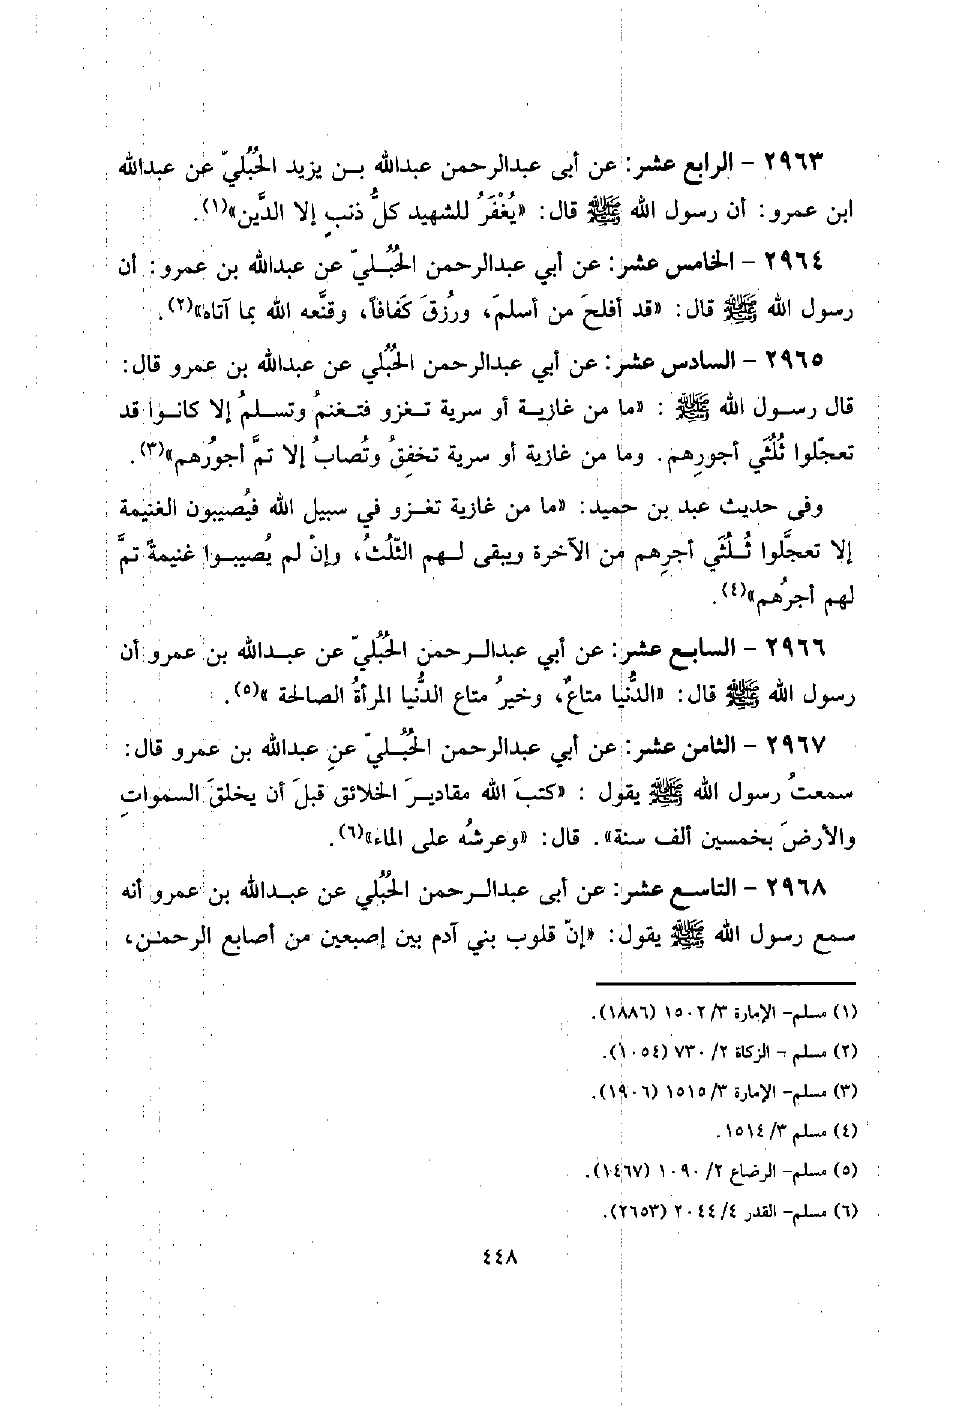 ٢٩٦٣ – الرابع عشر: عن أبى عبدالرحمن عبدالله بـن يزيد الحُبُليّ عن عبدالله
ابن عمرو: أن رسول الله ﷺ قال: «يُغْفَرُ للشهيد كلُّ ذنبٍ إلا الدَّين»(١).
٢٩٦٤ – الخامس عشر: عن أبي عبدالرحمن الحُبُـليّ عن عبدالله بن عمرو: أن
رسول الله ﷺ قال: «قد أفلحَ من أسلمَ، ورُزقَ كَفافاً، وقنَّعه الله بما آتاه»(٢).
٢٩٦٥ – السادس عشر: عن أبي عبدالرحمن الحُبُلي عن عبدالله بن عمرو قال:
قال رسـول الله ﷺ : «ما من غازيـة أو سرية تـغزو فتـغنمُ وتسلـمُ إلا كانـوا قد
تعجّلوا ثُلُثَي أجورِهم. وما من غازية أو سرية تخفِقُ وتُصابُ إلا تمَّ أجورُهم»(٣).
وفى حديث عبد بن حميد: «ما من غازية تغـزو في سبيل الله فيُصيبون الغنيمة
إلا تعجَّلوا ثُـلُثَي أجرِهم من الآخرة ويبقى لـهم الثّلثُ، وإنْ لم يُصيبـوا غنيمةً تمَّ
لهم أجرُهم»(٤).
٢٩٦٦ – السابـع عشر: عن أبي عبدالـرحمن الحُبُليّ عن عبـدالله بن عمرو أن
رسول الله ﷺ قال: «الدُّنيا متاعٌ، وخيرُ متاع الدُّنيا المرأةُ الصالحة »(٥).
٢٩٦٧ – الثامن عشر: عن أبي عبدالرحمن الحُبُـليّ عنِ عبدالله بن عمرو قال:
سمعتُ رسول الله ﷺ يقول : «كتبَ الله مقاديـرَ الخلائق قبلَ أن يخلقَ السمواتِ
والأرضَ بخمسين ألف سنة». قال: «وعرشُه على الماء»(٦).
٢٩٦٨ – التاسـع عشر: عن أبى عبدالـرحمن الحُبُلي عن عبـدالله بن عمرو أنه
سمع رسول الله ﷺ يقول: «إنّ قلوب بني آدم بين إصبعين من أصابع الرحمـٰن،
(١) مسلم- الإمارة ٣/ ١٥٠٢ (١٨٨٦).
(٢) مسلم – الزكاة ٢/ ٧٣٠ (١٠٥٤).
(٣) مسلم- الإمارة ٣/ ١٥١٥ (١٩٠٦).
(٤) مسلم ٣/ ١٥١٤.
(٥) مسلم- الرضاع ٢/ ١٠٩٠ (١٤٦٧).
(٦) مسلم- القدر ٤/ ٢٠٤٤ (٢٦٥٣).
٤٤٨